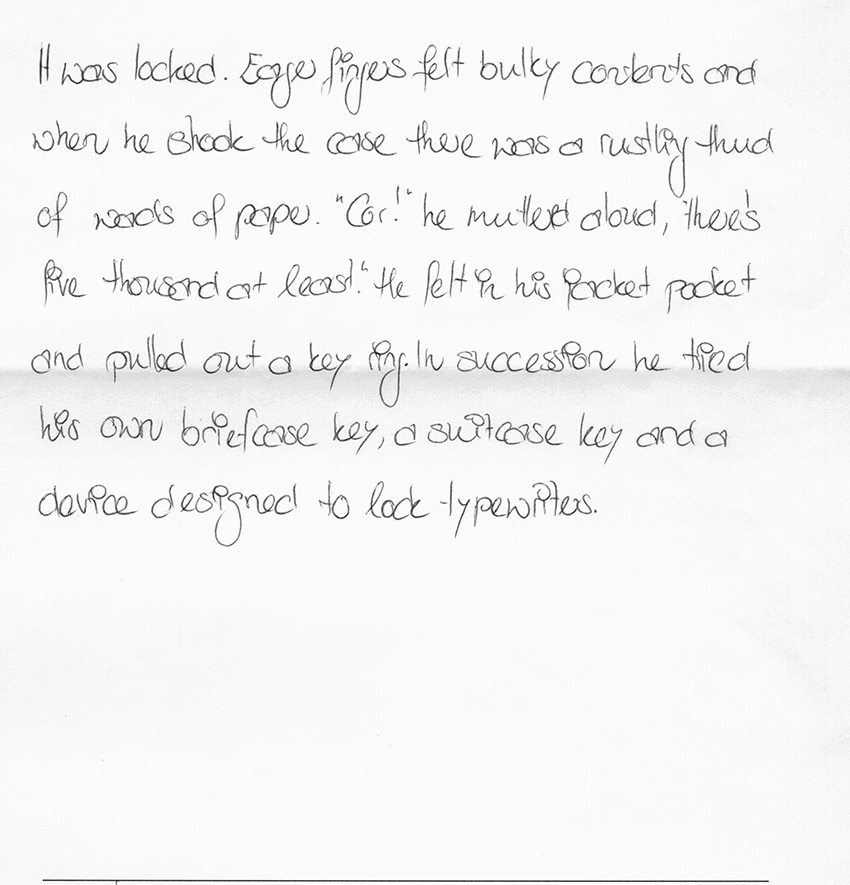 It was locked. Eager fingers felt bulky contents and
when he shook the case there was a rustling thud
of wads of paper. "Cor!" he muttered aloud, "there's
five thousand at least." He felt in his jacket pocket
and pulled out a key ring. In succession he tried
his own briefcase key, a suitcase key and a
device designed to lock typewriters.